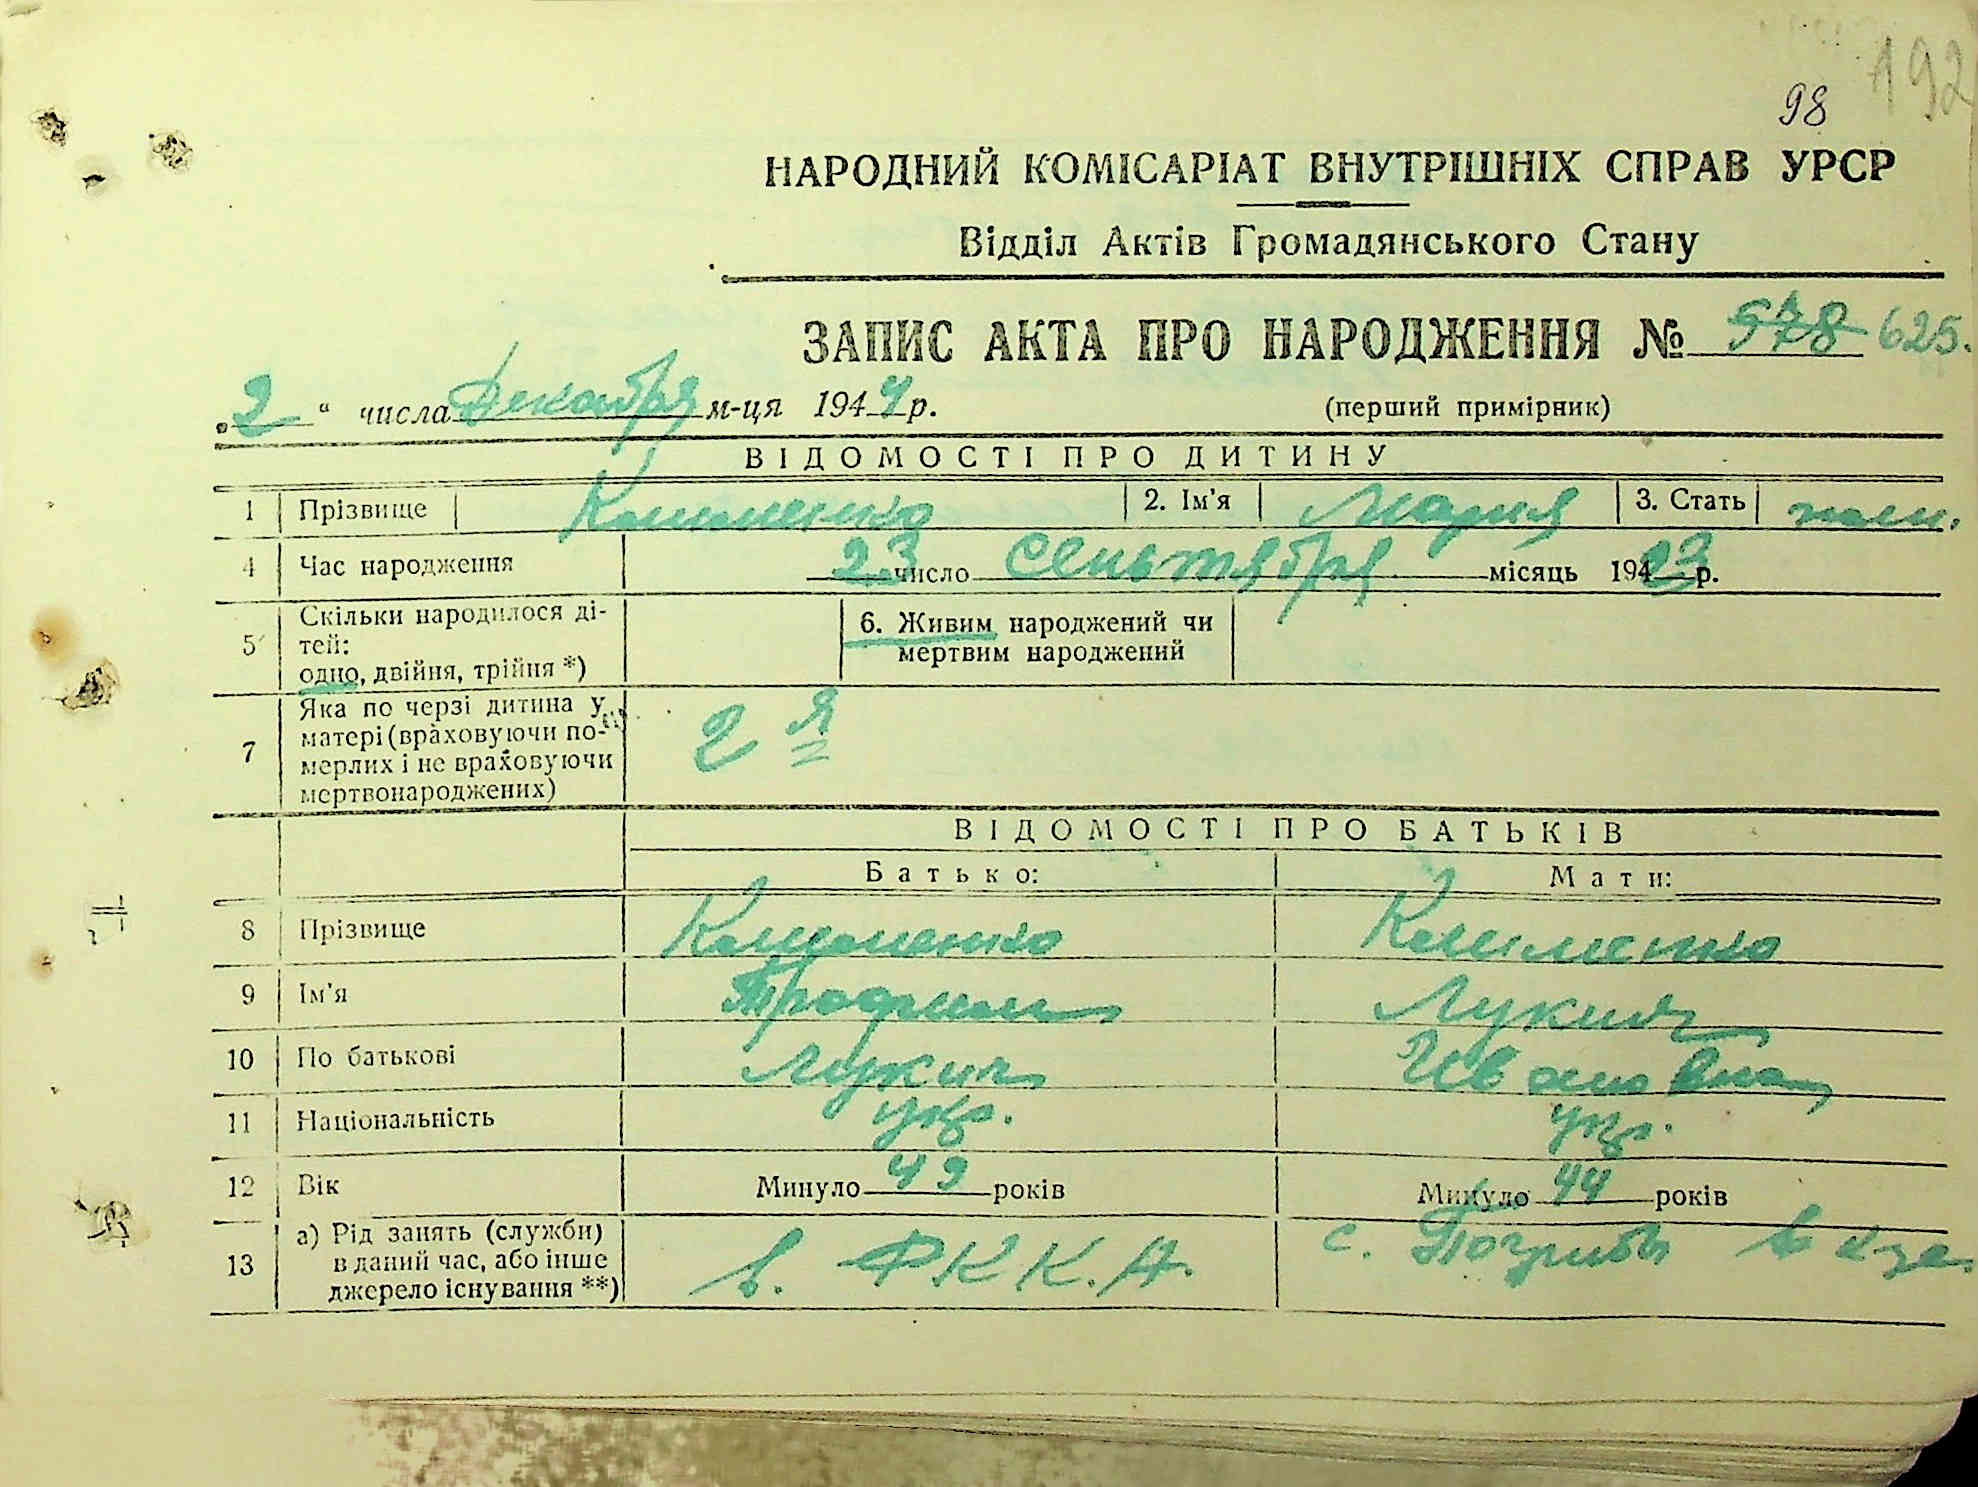 192
98
НАРОДНИЙ КОМІСАРІАТ ВНУТРІШНІХ СПРАВ УРСР
Відділ Актів Громадянського Стану
ЗАПИС АКТА ПРО НАРОДЖЕННЯ № 578 625.
„2“ числа Декабря м-ця 1944 р. (перший примірник)
ВІДОМОСТІ ПРО ДИТИНУ
1 Прізвище 2. Ім'я Мария 3. Стать
4 Час народження 23 число Сеньтября місяць 1923 р.
5 Скільки народилося ді-
тей:
одно, двійня, трійня *)
6. Живим народжений чи
мертвим народжений
7 Яка по черзі дитина у
матері (враховуючи по-
мерлих і не враховуючи
мертвонароджених)
2 я
ВІДОМОСТІ ПРО БАТЬКІВ
Батько: Мати:
8 Прізвище
9 Ім'я Трофим
10 По батькові Лукич Ивановна
11 Національність укр. укр.
12 Вік Минуло 49 років Минуло 44 років
13 а) Рід занять (служби)
в даний час, або інше
джерело існування **)
в. РККА. с. Погребы